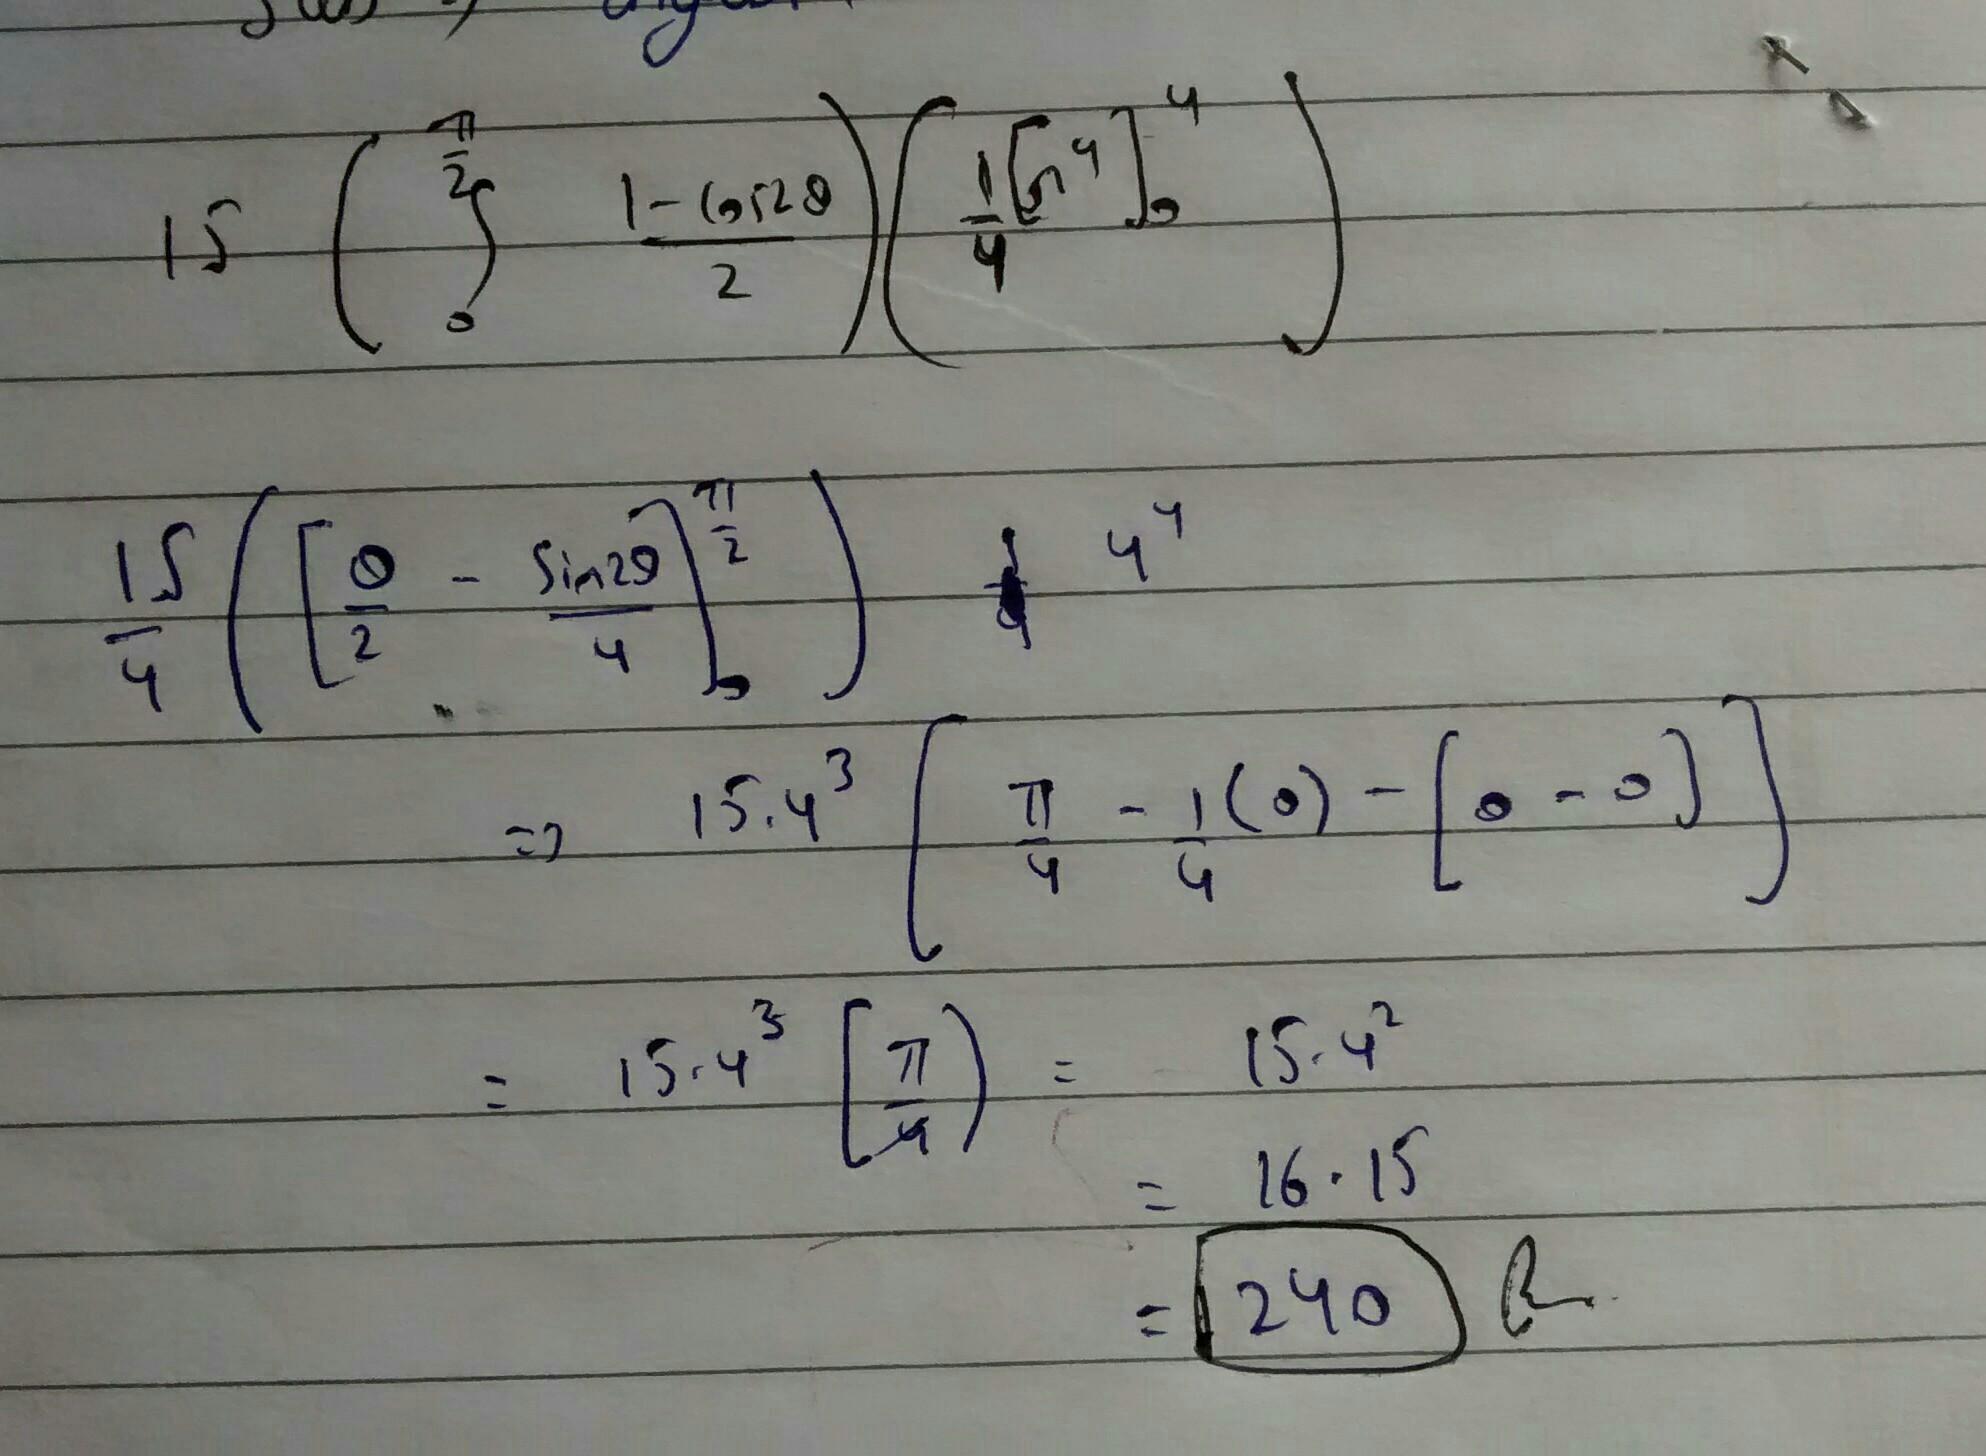 15 ( ∫_0^{π/2} (1 - cos2θ)/2 ) ( 1/4 [r^4]_0^4 )
15/4 ( [θ/2 - Sin2θ/4]_0^{π/2} ) 4^4
=> 15.4^3 [ π/4 - 1/4 (0) - [0 - 0] ]
= 15.4^3 [π/4) = 15.4^2
= 16.15
= 240